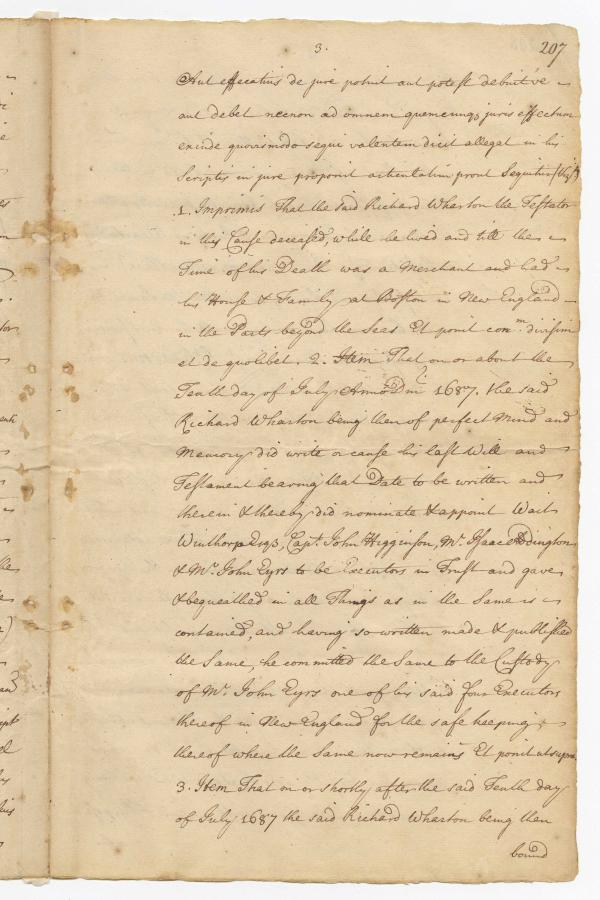 3.
207
Aut efficatius de jure potuit aut potest debuit've
aut debet necnon ad omnem quemcunq; juris effectum
exinde quovismodo sequi valentem dicit allegat in his
Scriptis in jure proponit articulatim prout Sequitur (vizt)
1. Imprimis That the said Richard Wharton the Testator
in this Cause deceased, while he lived and till the
Time of his Death was a Merchant and had
his House & Family at Boston in New England
in the Parts beyond the Seas Et ponit con.m divisim
et de quolibet. 2. Item That on or about the
Tenth day of July Anno Dm̄ 1687. the said
Richard Wharton being then of perfect Mind and
Memory did write or cause his last Will and
Testament bearing that Date to be written and
therein & thereby did nominate & appoint Wait
Winthrop Esq3, Capt. John Higginson, Mr. Isaac Addington
& Mr. John Eyrs to be Executors in Trust and gave
& bequeathed in all Things as in the Same is
contained, and having so written made & published
the Same, he committed the Same to the Custody
of Mr. John Eyrs one of his said four Executors
thereof in New England for the safe keeping
thereof where the Same now remains Et ponit ut supra.
3. Item That on or shortly after the said Tenth day
of July 1687 the said Richard Wharton being then
bound